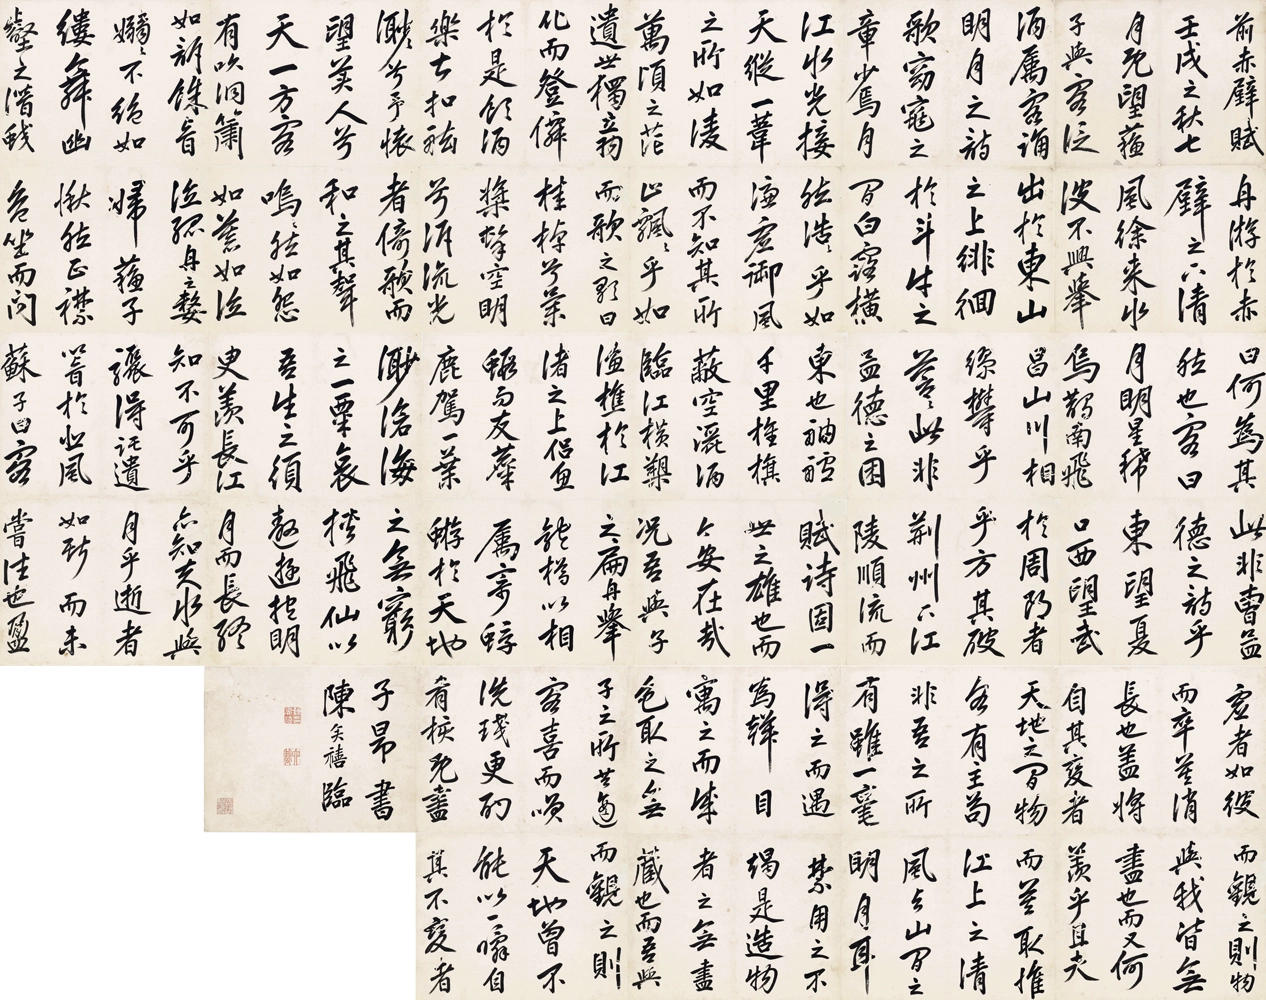 前赤壁賦
壬戌之秋七
月既望蘇
子與客泛
舟游於赤
壁之下清
風徐来水
波不興舉
酒屬客誦
明月之詩
歌窈窕之
章少焉月
出於東山
之上徘徊
於斗牛之
間白露橫
江水光接
天縱一葦
之所如淩
萬頃之茫
然浩浩乎如
馮虛御風
而不知其所
止飄飄乎如
遺世獨立羽
化而登僊
於是飲酒
樂甚扣舷
而歌之歌曰
桂棹兮蘭
槳擊空明
兮泝流光
渺渺兮予懷
望美人兮
天一方客
有吹洞簫
者倚歌而
和之其聲
嗚嗚然如怨
如慕如泣
如訴餘音
嫋嫋不絕如
縷舞幽
壑之潛蛟
泣孤舟之嫠
婦蘇子
愀然正襟
危坐而問
客曰何為其
然也客曰
月明星稀
烏鵲南飛
此非曹孟
德之詩乎
東望夏
口西望武
昌山川相
繆鬱乎
蒼蒼此非
孟德之困
於周郎者
乎方其破
荊州下江
陵順流而
東也舳艫
千里旌旗
蔽空釃酒
臨江橫槊
賦詩固一
世之雄也而
今安在哉
況吾與子
漁樵於江
渚之上侶魚
蝦而友麋
鹿駕一葉
之扁舟舉
匏樽以相
屬寄蜉
蝣於天地
渺滄海
之一粟哀
吾生之須
臾羨長江
之無窮
挾飛仙以
遨遊抱明
月而長終
知不可乎
驟得託遺
響於悲風
蘇子曰客
亦知夫水與
月乎逝者
如斯而未
嘗往也盈
虛者如彼
而卒莫消
長也蓋將
自其變者
而觀之則
天地曾不
能以一瞬自
其不變者
而觀之則物
與我皆無
盡也而又何
羨乎且夫
天地之間物
各有主苟
非吾之所
有雖一毫
而莫取惟
江上之清
風與山間之
明月耳
得之而遇
為聲目
寓之而成
色取之無
禁用之不
竭是造物
者之無盡
藏也而吾與
子之所共適
客喜而笑
洗琖更酌
肴核既盡
子昂書
陳奕禧臨